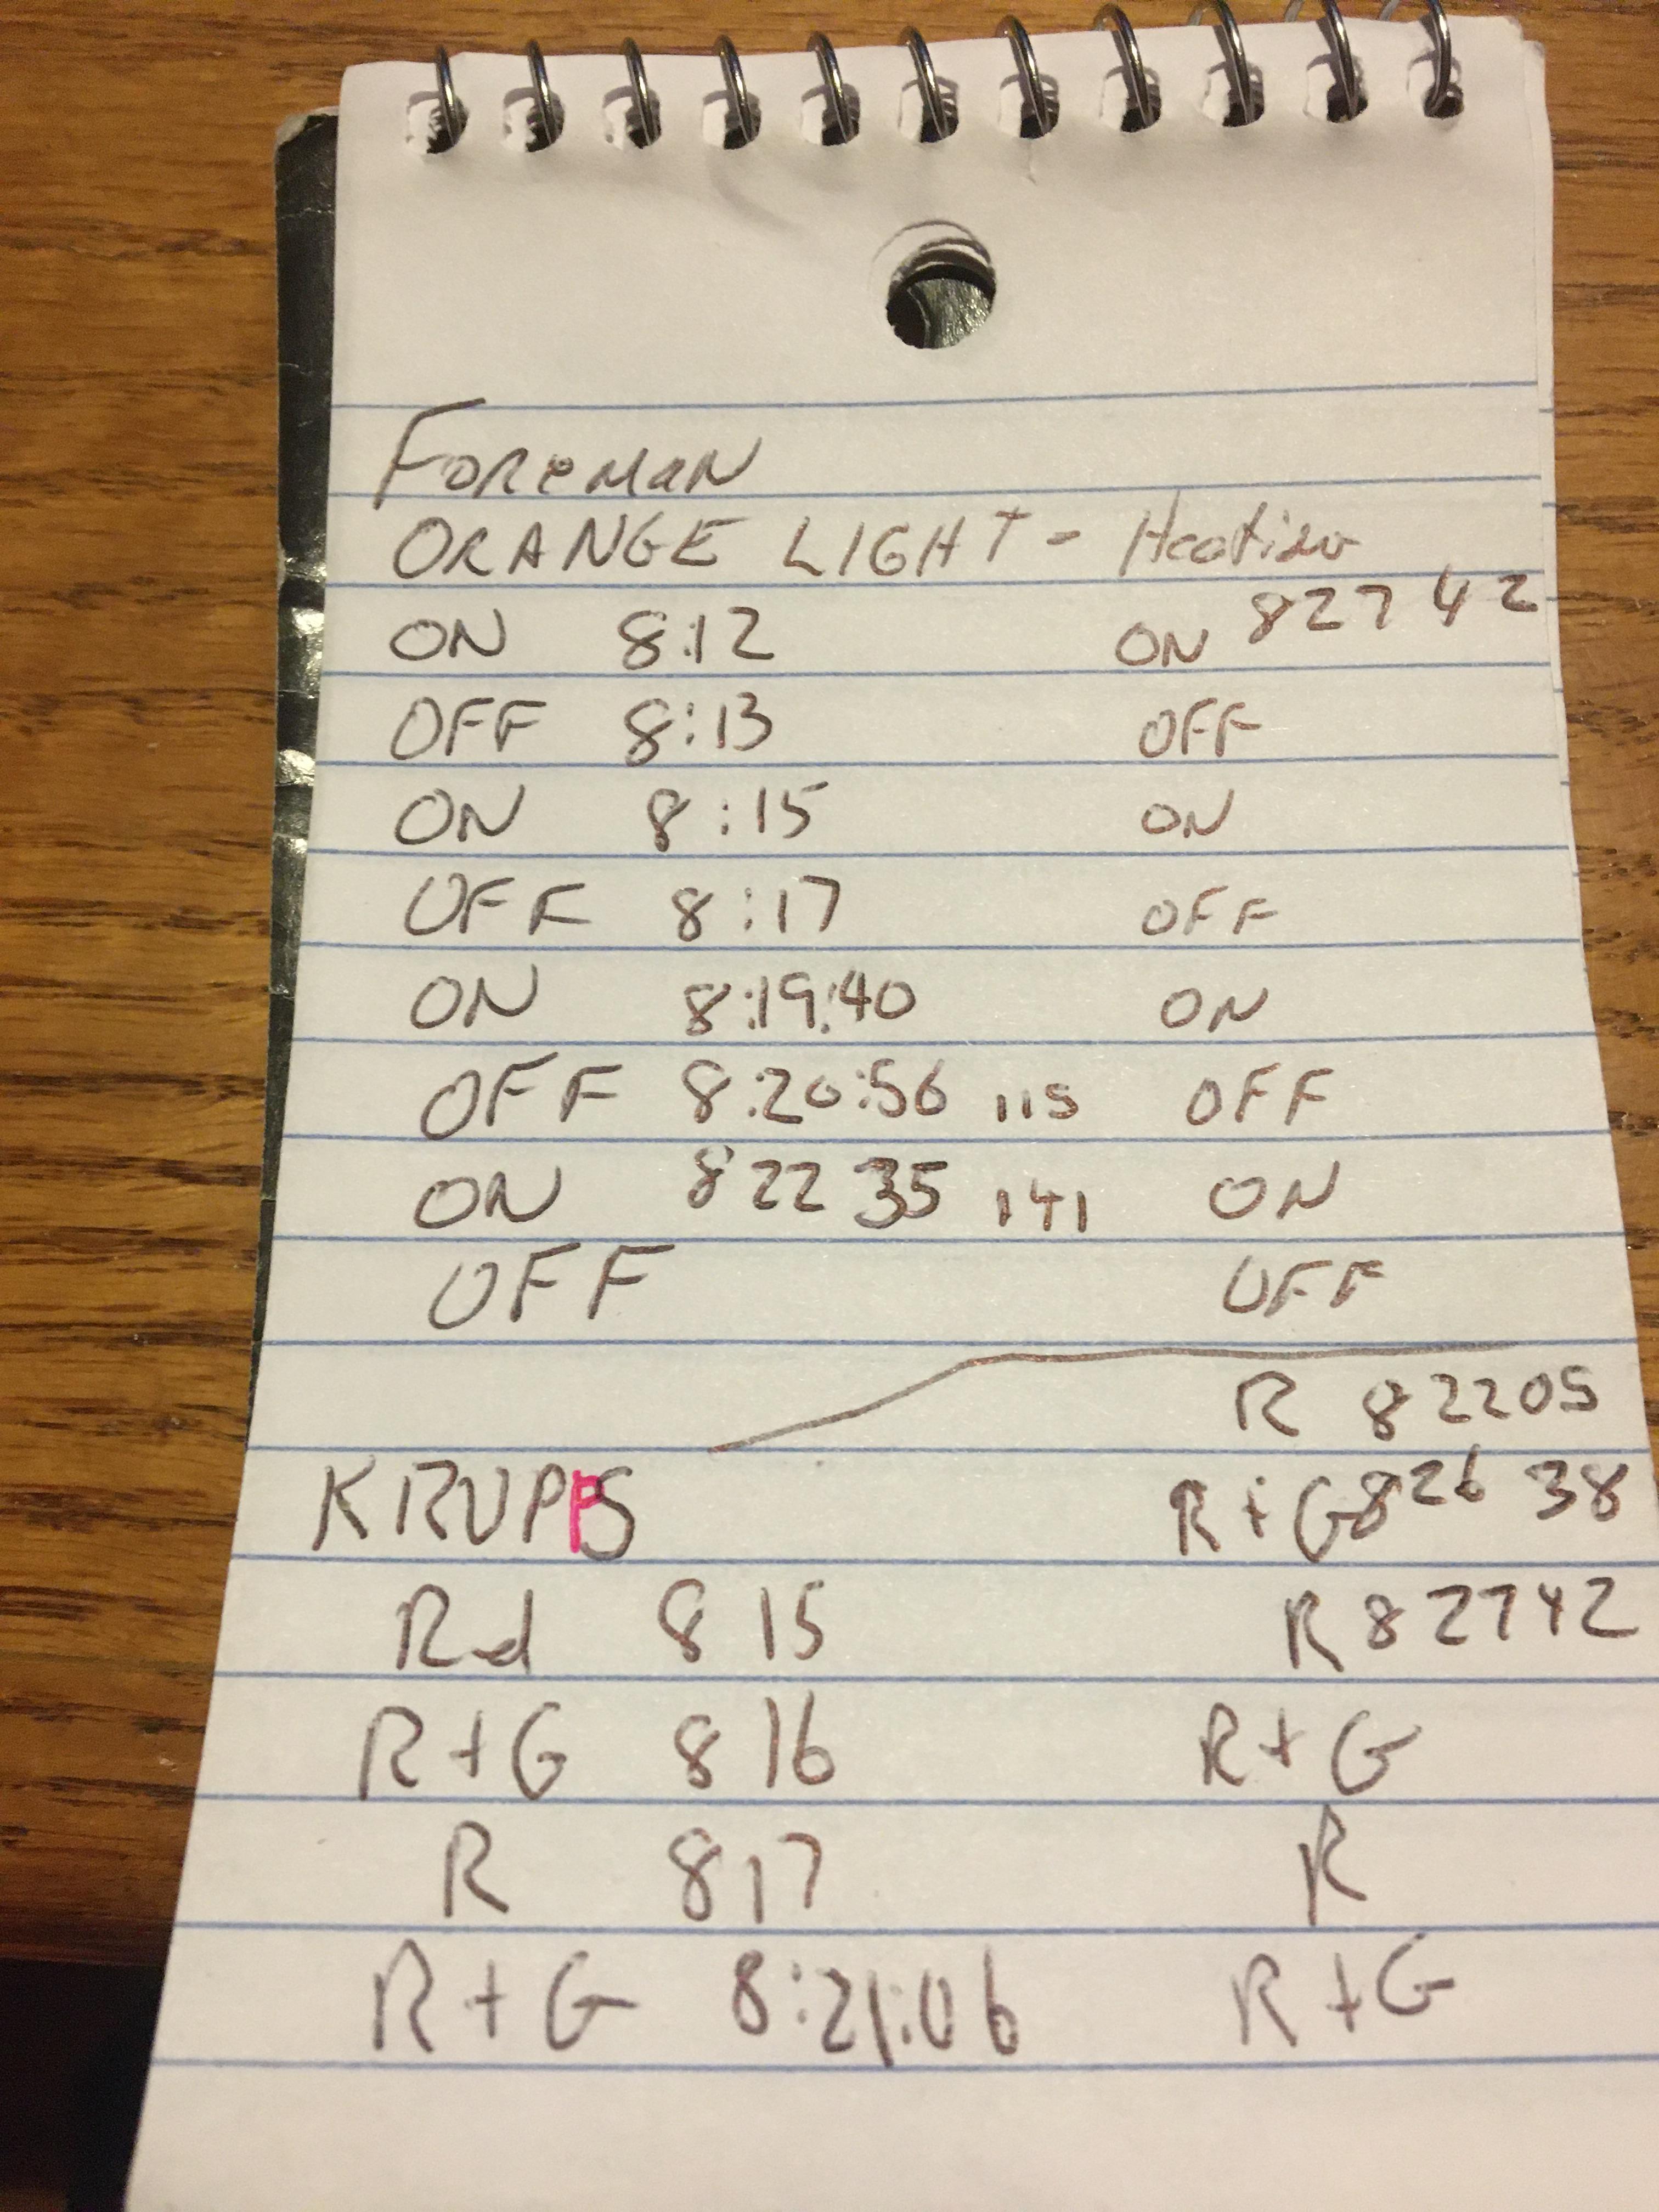 FOREMAN
ORANGE LIGHT - Heating
ON 8:12 ON 82742
OFF 8:13 OFF
ON 8:15 ON
OFF 8:17 OFF
ON 8:19:40 ON
OFF 8:20:56 115 OFF
ON 822 35 141 ON
OFF OFF
R 82205
KRUPPS R+G 826 38
Rd 8 15 R 82742
R+G 8 16 R+G
R 817 R
R+G 8:21:06 R+G